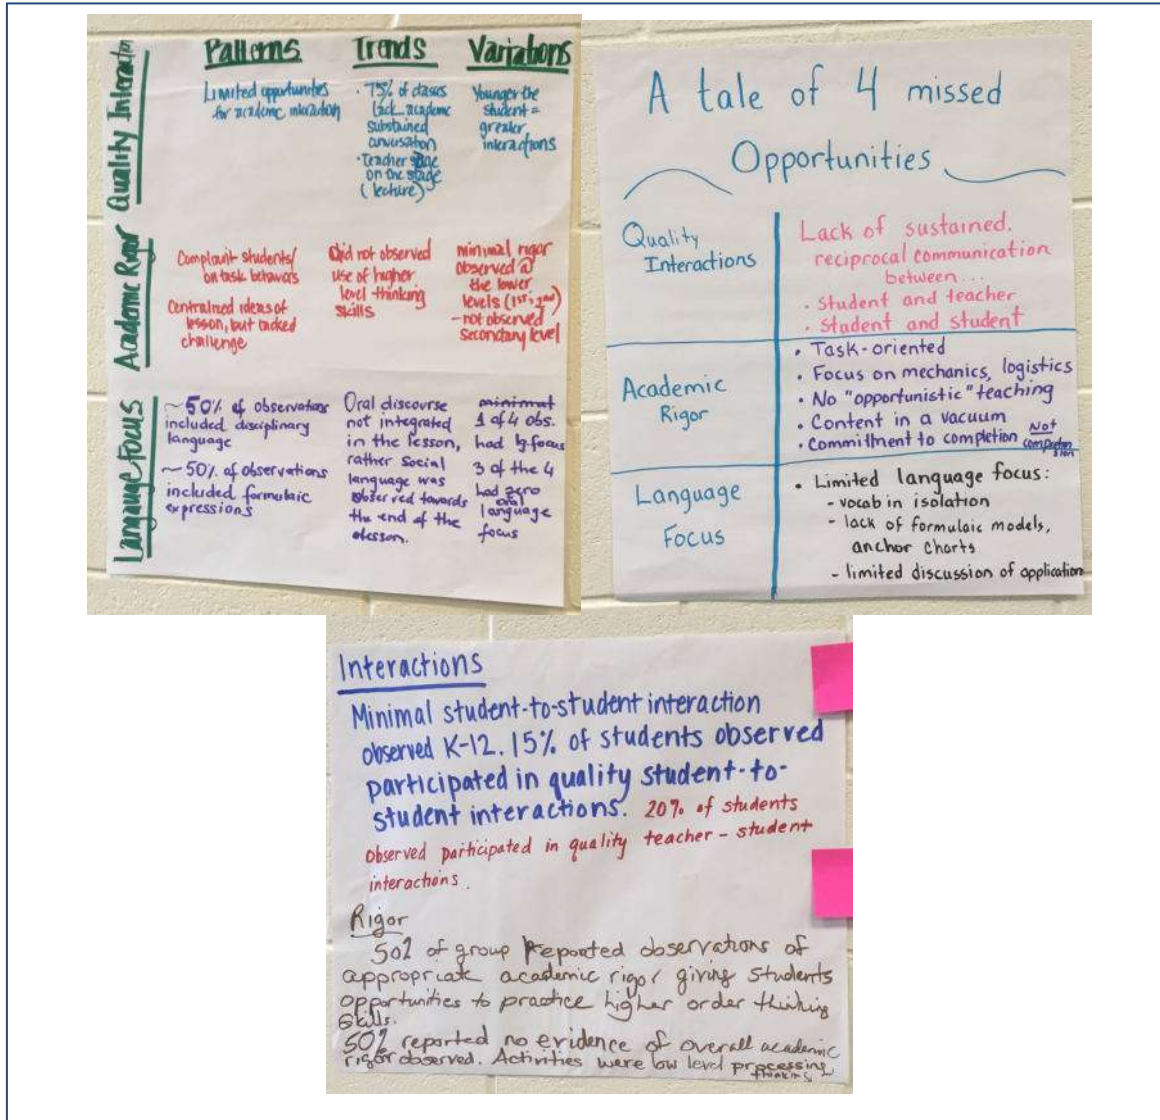 Patterns Trends Variations
Quality Interaction
Limited opportunities
for academic interaction
• 75% of classes
lack academic
substained
conversation
• Teacher sage
on the stage
(lecture)
Younger the
student =
greater
interactions
Academic Rigor
Complaint students/
on task behavors
Centralized ideas of
lesson, but lacked
challenge
Did not observed
use of higher
level thinking
skills
minimal rigor
observed @
the lower
levels (1st-2nd)
- not observed
secondary level
Langauge Focus
~50% of observations
included disciplinary
language
~50% of observations
included formulaic
expressions
Oral discourse
not integrated
in the lesson,
rather social
language was
observed towards
the end of the
lesson.
minimal
1 of 4 obs.
had lg focus
3 of the 4
had zero
oral
language
focus
A tale of 4 missed
Opportunities
Quality
Interactions
Lack of sustained,
reciprocal communication
between...
• student and teacher
• student and student
Academic
Rigor
• Task-oriented
• Focus on mechanics, logistics
• No "opportunistic" teaching
• Content in a vacuum
• Commitment to completion Not
comprehension
Language
Focus
• Limited language focus:
- vocab in isolation
- lack of formulaic models,
anchor charts
- limited discussion of application
Interactions
Minimal student-to-student interaction
observed K-12. 15% of students observed
participated in quality student-to-
student interactions. 20% of students
observed participated in quality teacher-student
interactions.
Rigor
50% of group reported observations of
appropriate academic rigor giving students
opportunities to practice higher order thinking
skills.
50% reported no evidence of overall academic
rigor observed. Activities were low level processing
thinking